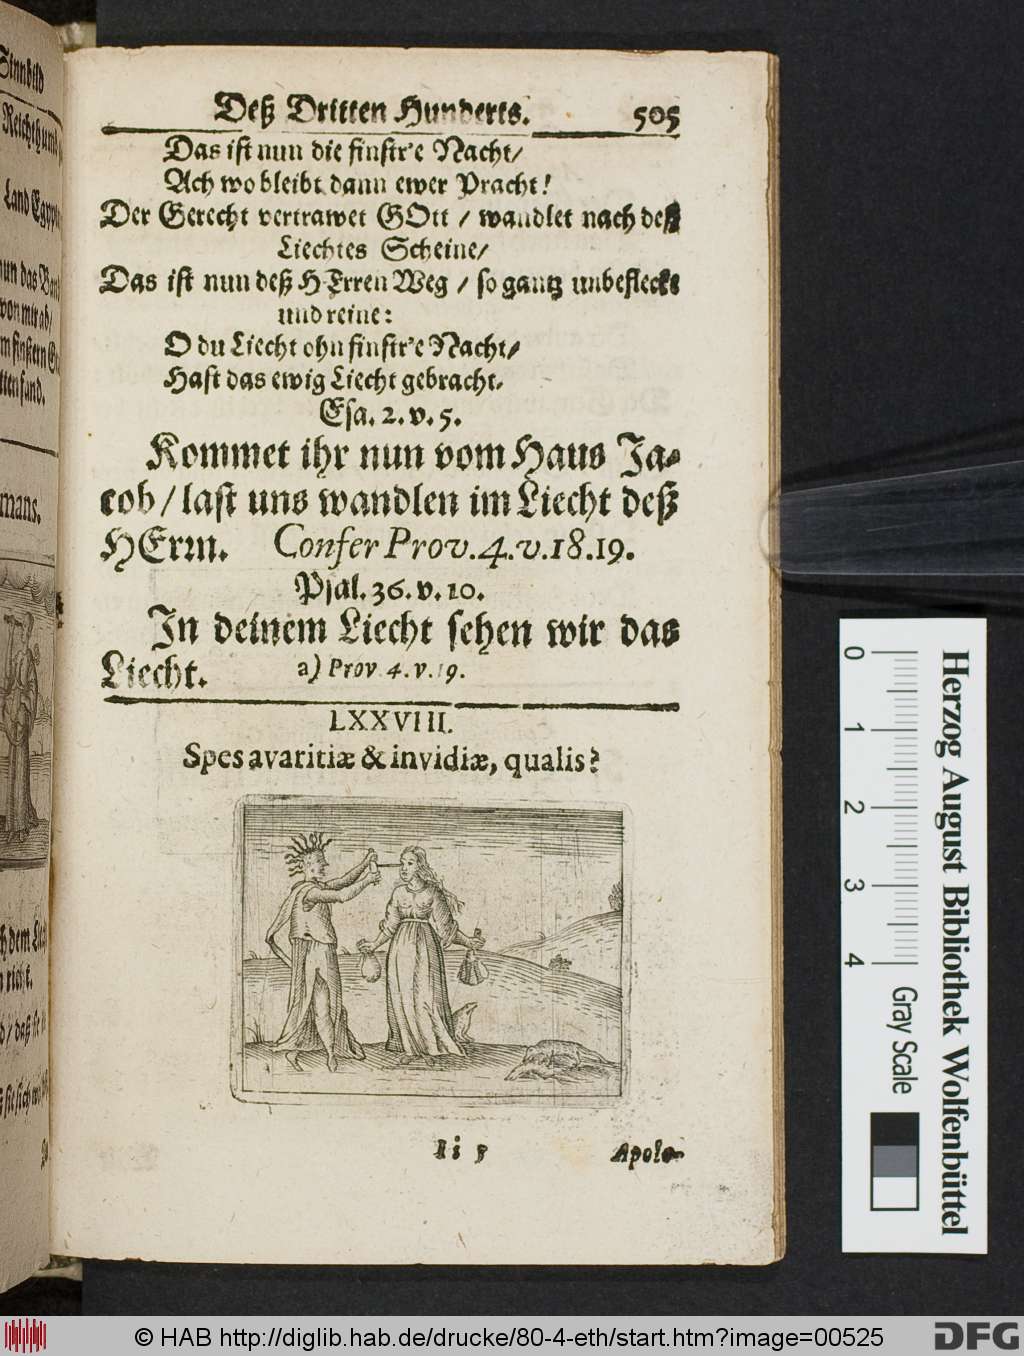 Sinnbild
Land Egypten
mans.
Deß Dritten Hunderts. 505
Das ist nun die finstr'e Nacht/
Ach wo bleibt dann ewer Pracht!
Der Gerecht vertrawet GOtt / wandlet nach deß
Liechtes Scheine/
Das ist nun deß HErren Weg / so gantz unbefleckt
und reine:
O du Liecht ohn finstr'e Nacht/
Hast das ewig Liecht gebracht.
Esa. 2. v. 5.
Kommet ihr nun vom Haus Ja-
cob / last uns wandlen im Liecht deß
HErrn. Confer Prov. 4. v. 18. 19.
Psal. 36. v. 10.
In deinem Liecht sehen wir das
Liecht. a) Prov. 4. v. 19.
LXXVIII.
Spes avaritiæ & invidiæ, qualis?
Ii 5 Apolo-
0 1 2 3 4 Gray Scale
Herzog August Bibliothek Wolfenbüttel
© HAB http://diglib.hab.de/drucke/80-4-eth/start.htm?image=00525 DFG